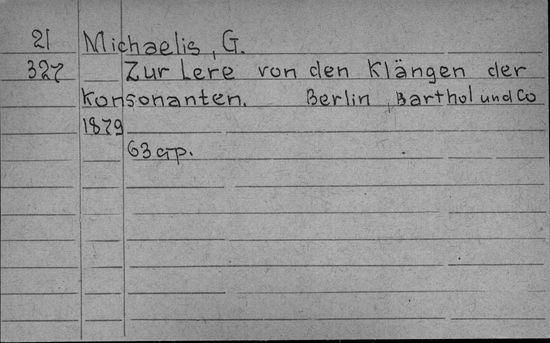 21 Michaelis, G.
327 Zur Lere von den Klängen der
Konsonanten. Berlin, Barthol und Co
1879
63 стр.